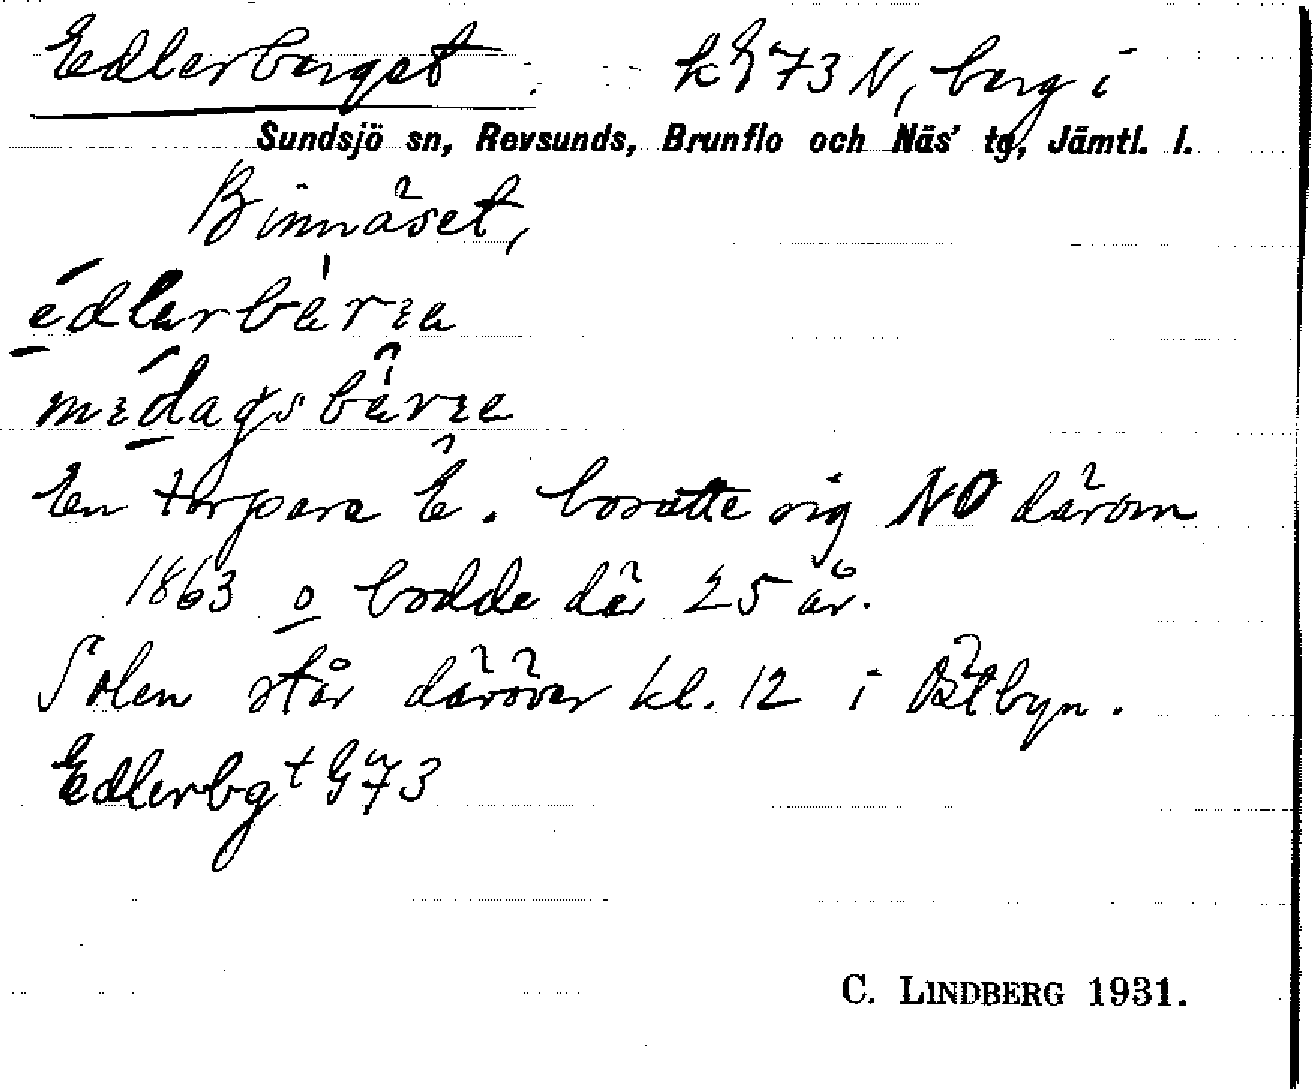 Edlerberget. k G 73 N, berg i
Sundsjö sn, Revsunds, Brunflo och Näs' tg, Jämtl. l.
Binnäset,
edlarbärɛa
medagsbärɛa
En torpare E. bosatte sig NO därom
1863 o bodde där 25 år.
Solen står däröver kl. 12 i Östbyn.
Edlerbgt G 73
C. LINDBERG 1931.